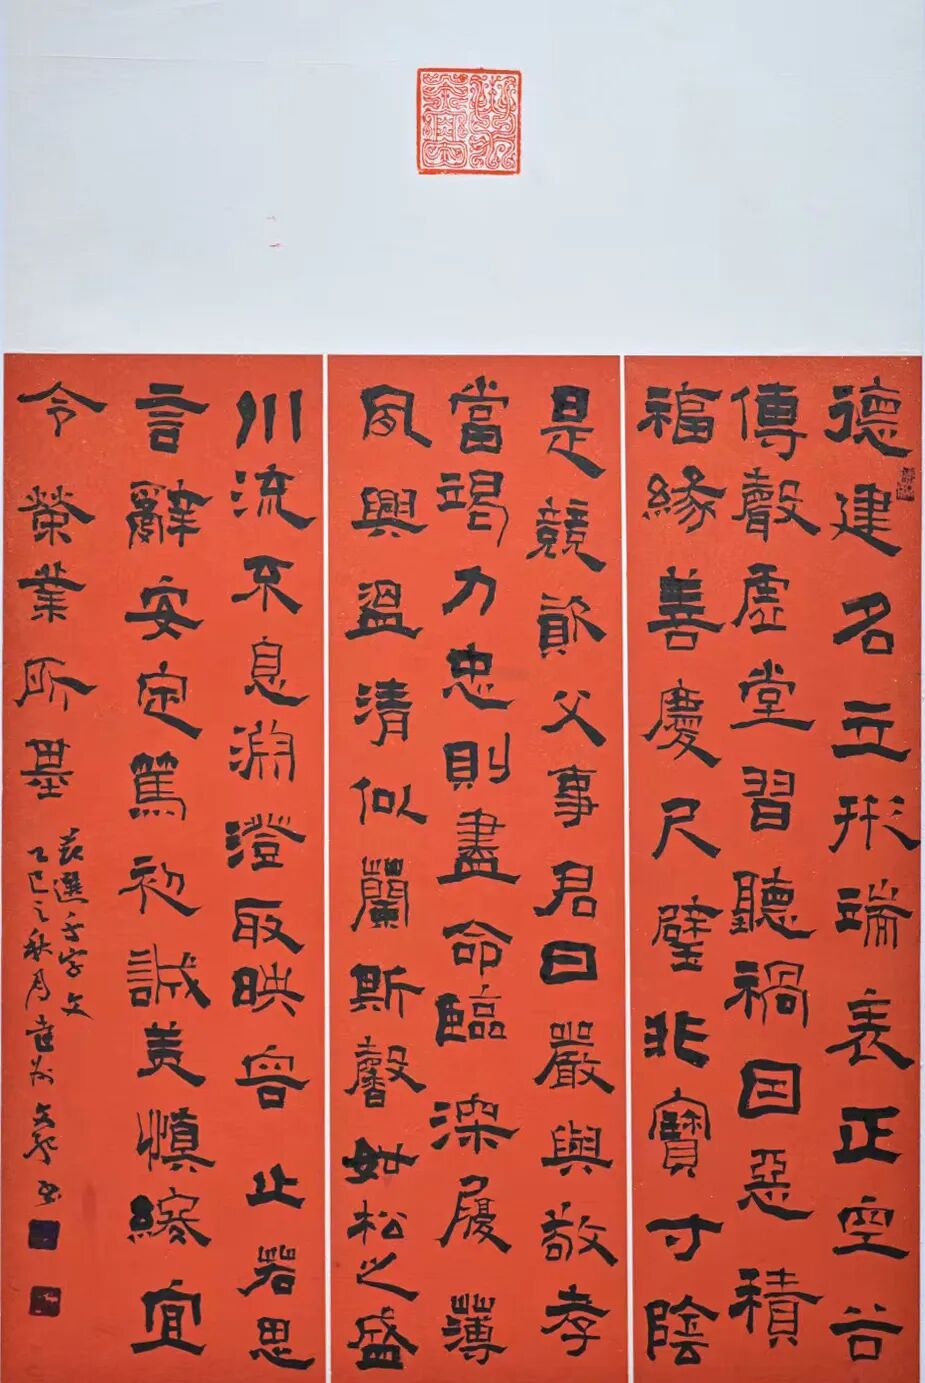 德建名立形端表正空谷
傳聲虛堂習聽禍因惡積
福緣善慶尺璧非寶寸陰
是競資父事君曰嚴與敬孝
當竭力忠則盡命臨深履薄
夙興溫清似蘭斯馨如松之盛
川流不息淵澄取映容止若思
言辭安定篤初誠美慎終宜
令榮業所基
表選千字文
乙巳之秋月